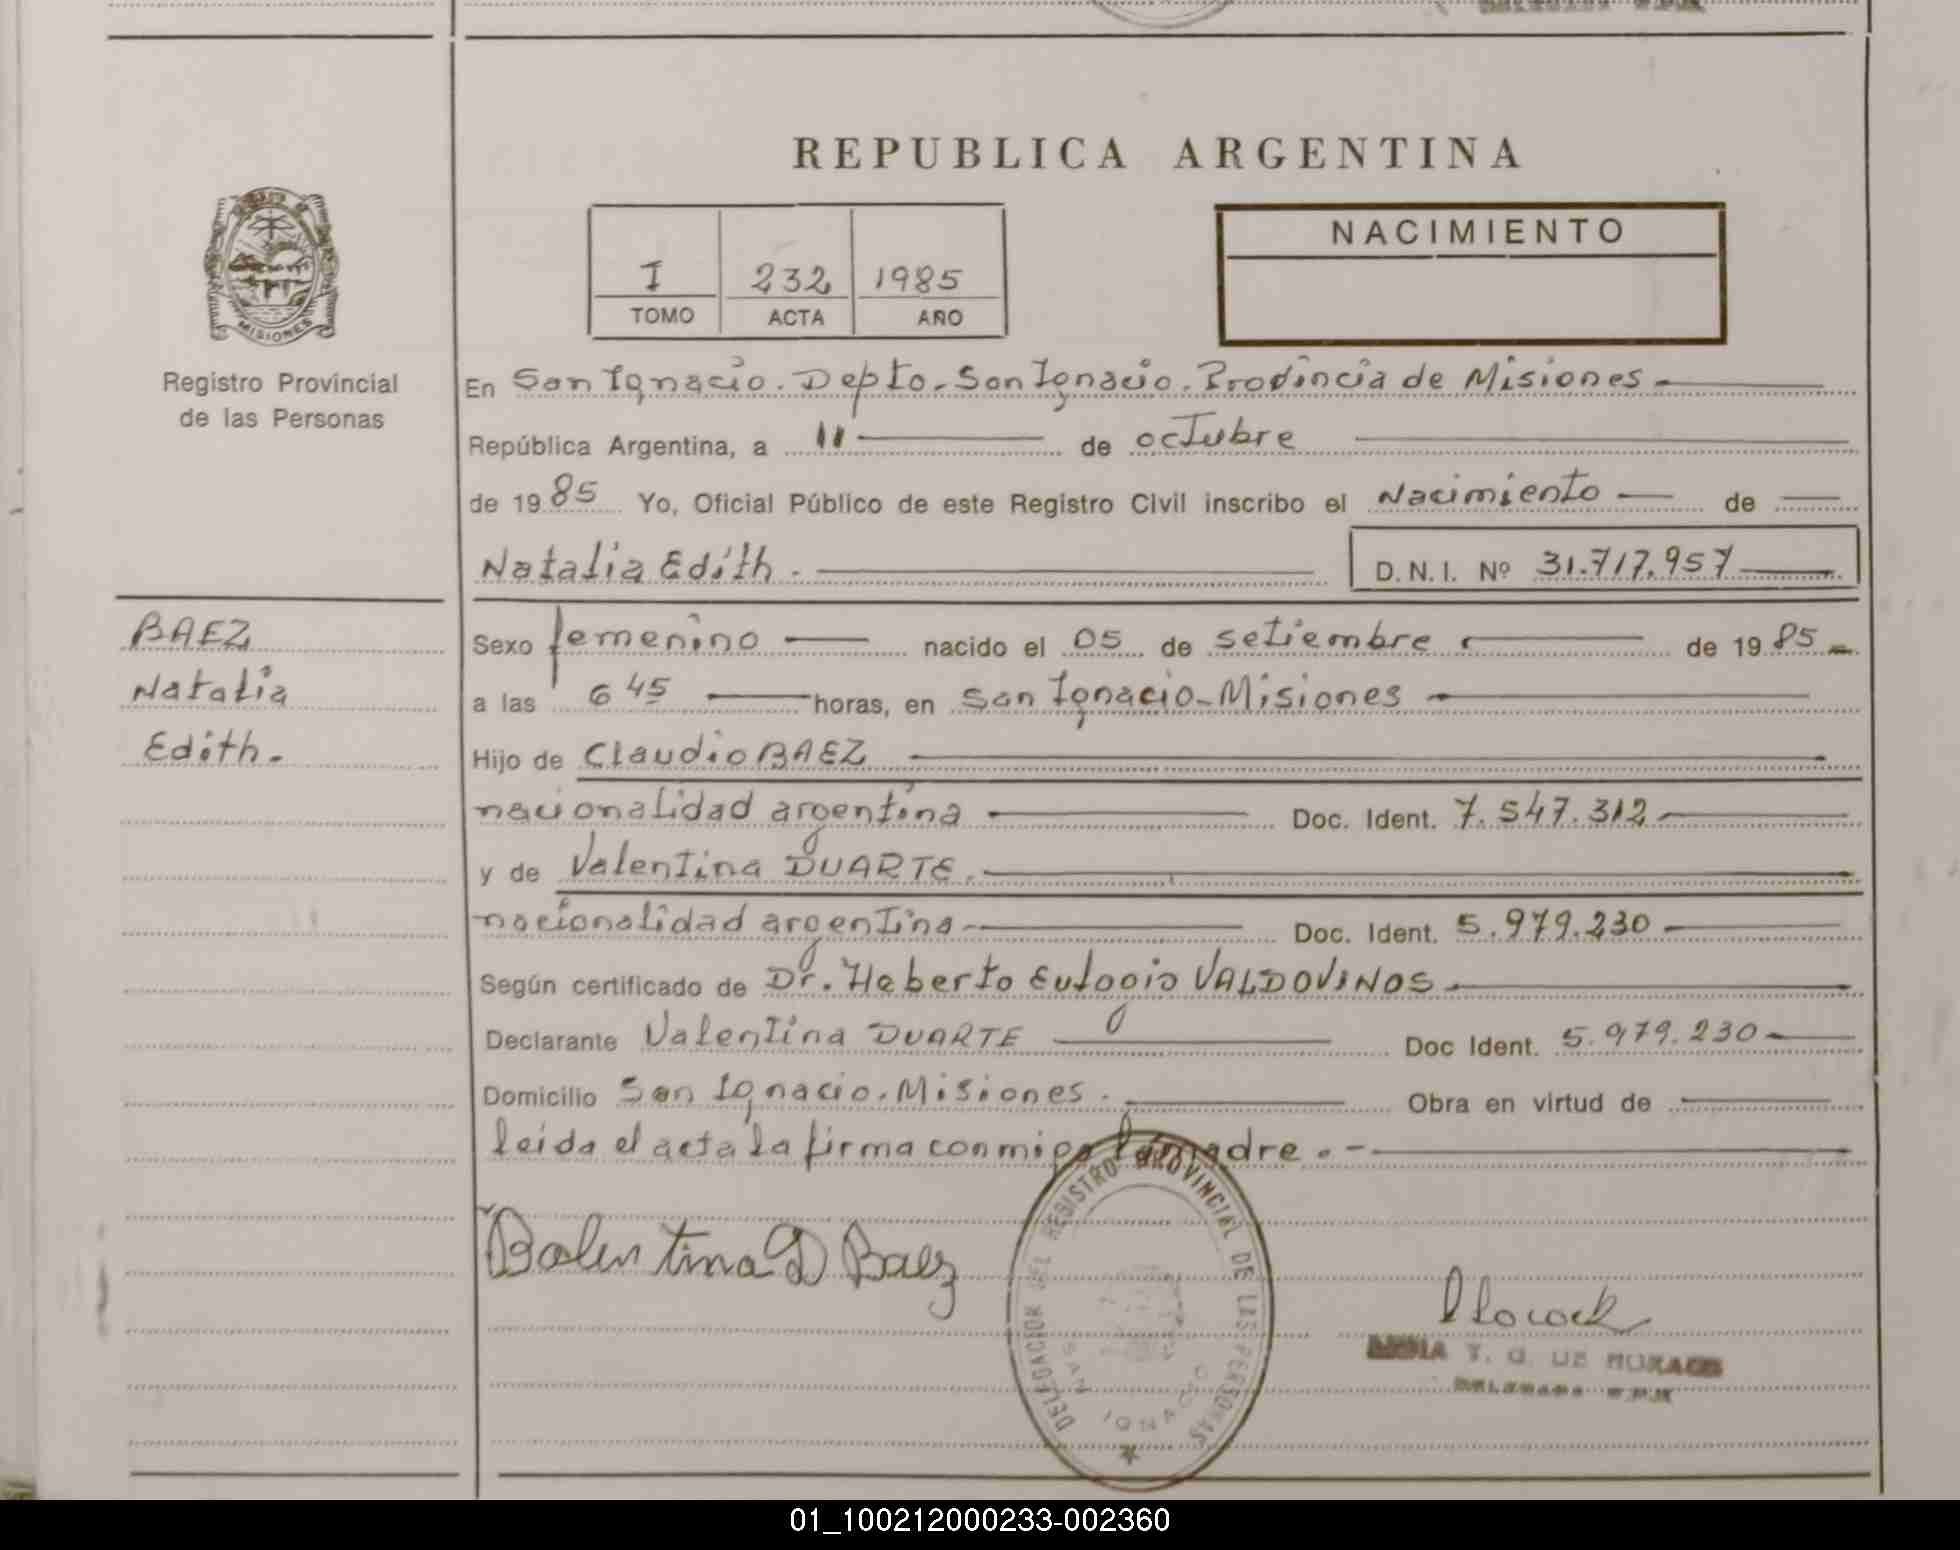 REPUBLICA ARGENTINA
MISIONES
Registro Provincial
de las Personas
I 232 1985
TOMO ACTA AÑO
NACIMIENTO
En San Ignacio. Depto. San Ignacio. Provincia de Misiones
República Argentina, a 11 de octubre
de 1985 Yo, Oficial Público de este Registro Civil inscribo el Nacimiento de
Natalia Edith. D.N.I. Nº 31.717.957
BAEZ
Natalia
Edith.
Sexo femenino nacido el 05 de setiembre de 1985
a las 6 45 horas, en San Ignacio-Misiones
Hijo de Claudio BAEZ
nacionalidad argentina Doc. Ident. 7.547.312
y de Valentina DUARTE.
nacionalidad argentina Doc. Ident. 5.979.230
Según certificado de Dr. Heberto Eulogio VALDOVINOS
Declarante Valentina DUARTE Doc Ident. 5.979.230
Domicilio San Ignacio. Misiones. Obra en virtud de
leida el acta la firma conmigo la madre.-
Balentina D Baez
DELEGACION DEL REGISTRO PROVINCIAL DE LAS PERSONAS
SAN IGNACIO
DE MORAES
01_100212000233-002360